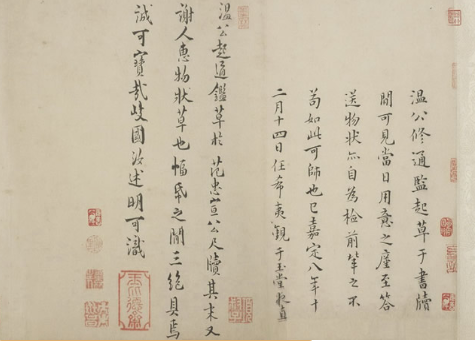 温公修通監起草于書牘
間可見當日用意之廑至答
送物狀亦自為檢前輩之不
苟如此可師也已嘉定八年十
二月十四日任希夷觀于玉堂夜直
温公起通鑑草於范忠宣公尺牘其末又
謝人惠物狀草也幅帋之間三絶具焉
誠可寶哉歧國汝述明可識